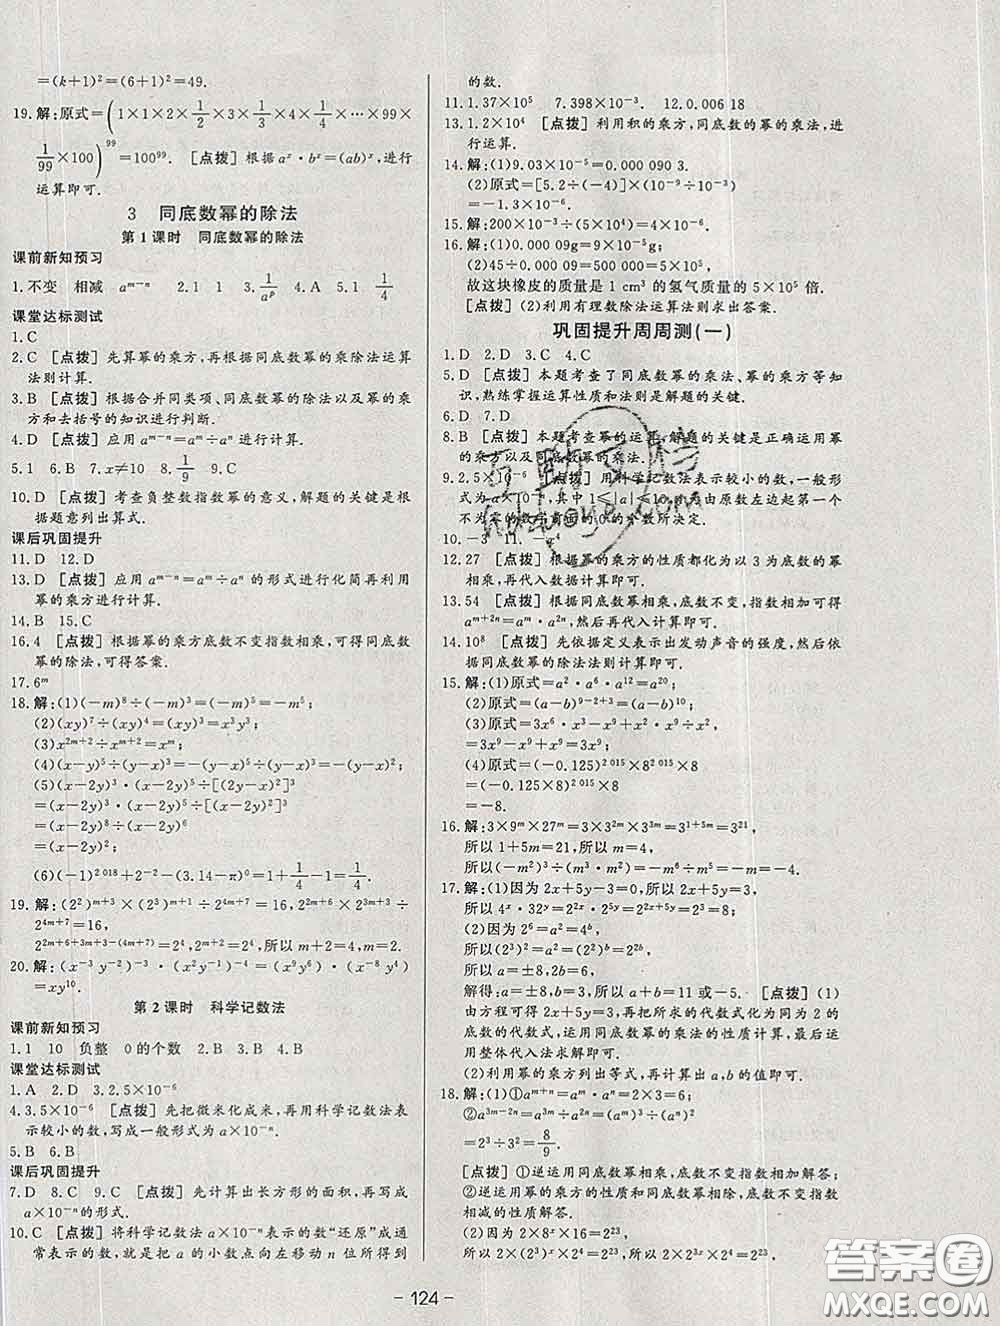 =(k+1)²=(6+1)²=49.
19.解:原式=(1×1×2×1/2×3×1/3×4×1/4×…×99×
1/99×100)⁹⁹=100⁹⁹. [点拨] 根据aˣ·bˣ=(ab)ˣ,进行
运算即可.
3 同底数幂的除法
第1课时 同底数幂的除法
课前新知预习
1.不变 相减 aᵐ⁻ⁿ 2.1 1 3.1/aᵖ 4.A 5.1 1/4
课堂达标测试
1.C
2.C [点拨] 先算幂的乘方,再根据同底数幂的乘除法运算
法则计算.
3.B [点拨] 根据合并同类项、同底数幂的除法以及幂的乘
方和去括号的知识进行判断.
4.D [点拨] 应用aᵐ⁻ⁿ=aᵐ÷aⁿ进行计算.
5.1 6.B 7.x≠10 8.1/9 9.C
10.D [点拨] 考查负整数指数幂的意义,解题的关键是根
据题意列出算式.
课后巩固提升
11.D 12.D
13.D [点拨] 应用aᵐ⁻ⁿ=aᵐ÷aⁿ的形式进行化简再利用
幂的乘方进行计算.
14.B 15.C
16.4 [点拨] 根据幂的乘方底数不变指数相乘,可得同底数
幂的除法,可得答案.
17.6ᵐ
18.解:(1)(-m)⁸÷(-m)³=(-m)⁵=-m⁵;
(2)(xy)⁷÷(xy)⁴=(xy)³=x³y³;
(3)x²ᵐ⁺²÷xᵐ⁺²=xᵐ;
(4)(x-y)⁵÷(y-x)³=-(y-x)⁵÷(y-x)³=-(y-x)²;
(5)(x-2y)³·(x-2y)⁵÷[(2y-x)²]³
=(x-2y)³·(x-2y)⁵÷[(x-2y)²]³
=(x-2y)⁸÷(x-2y)⁶
=(x-2y)²;
(6)(-1)²⁰¹⁸+2⁻²-(3.14-π)⁰=1+1/4-1=1/4.
19.解:(2²)ᵐ⁺³×(2³)ᵐ⁺¹÷2⁴ᵐ⁺⁷=16,2²ᵐ⁺⁶×2³ᵐ⁺³÷
2⁴ᵐ⁺⁷=16,
2²ᵐ⁺⁶⁺³ᵐ⁺³⁻⁽⁴ᵐ⁺⁷⁾=2⁴,2ᵐ⁺²=2⁴,所以m+2=4,m=2.
20.解:(x⁻³y⁻²)⁻³·(x²y⁻¹)⁻⁴=(x⁹y⁶)·(x⁻⁸y⁴)
=xy¹⁰.
第2课时 科学记数法
课前新知预习
1.1 10 负整 0的个数 2.B 3.B 4.B
课堂达标测试
1.A 2.D 3.2.5×10⁻⁶
4.3.5×10⁻⁶ [点拨] 先把微米化成米,再用科学记数法表
示较小的数,写成一般形式为a×10⁻ⁿ.
5.B 6.B
课后巩固提升
7.D 8.C 9.C [点拨] 先计算出长方形的面积,再写成
a×10⁻ⁿ的形式.
10.C [点拨] 将科学记数法a×10⁻ⁿ表示的数“还原”成通
常表示的数,就是把a的小数点向左移动n位所得到
的数.
11.1.37×10⁵ 7.398×10⁻³. 12.0.006 18
13.1.2×10⁴ [点拨] 利用积的乘方,同底数的幂的乘法,进
行运算.
14.解:(1)9.03×10⁻⁵=0.000 090 3.
(2)原式=[5.2÷(-4)]×(10⁻⁹÷10⁻³)
=-1.3×10⁻⁶.
15.解:200×10⁻³÷(5×10⁴)=4×10⁻⁶.
16.解:(1)0.000 09g=9×10⁻⁵g;
(2)45÷0.000 09=500 000=5×10⁵,
故这块橡皮的质量是1 cm³的氢气质量的5×10⁵倍.
[点拨] (2)利用有理数除法运算法则求出答案.
巩固提升周周测(一)
1.D 2.D 3.C 4.C
5.D [点拨] 本题考查了同底数幂的乘法、幂的乘方等知
识,熟练掌握运算性质和法则是解题的关键.
6.D 7.D
8.B [点拨] 本题考查幂的运算,解题的关键是正确运用幂
的乘方以及同底数幂的乘法.
9.2.5×10⁻⁶ [点拨] 用科学记数法表示较小的数,一般形
式为a×10⁻ⁿ,其中1≤|a|<10,n由原数左边起第一个
不为零的数字前面的0的个数所决定.
10.-3 11.
12.27 [点拨] 根据幂的乘方的性质都化为以3为底数的幂
相乘,再代入数据计算即可.
13.54 [点拨] 根据同底数幂相乘,底数不变,指数相加可得
aᵐ⁺²ⁿ=aᵐ·a²ⁿ,然后再代入计算即可.
14.10⁸ [点拨] 先依据定义表示出发动声音的强度,然后依
据同底数幂的除法法则计算即可.
15.解:(1)原式=a²·a⁶·a¹²=a²⁰;
(2)原式=(a-b)⁹⁻²⁺³=(a-b)¹⁰;
(3)原式=3x⁶·x³-x⁹+x²·x⁹÷x²,
=3x⁹-x⁹+x⁹=3x⁹;
(4)原式=(-0.125)²⁰¹⁵×8²⁰¹⁵×8
=(-0.125×8)²⁰¹⁵×8
=-8.
16.解:3×9ᵐ×27ᵐ=3×3²ᵐ×3³ᵐ=3¹⁺⁵ᵐ=3²¹,
所以1+5m=21,所以m=4,
所以(-m²)³÷(m³·m²)=-m⁶÷m⁵=-m=-4.
17.解:(1)因为2x+5y-3=0,所以2x+5y=3,
所以4ˣ·32ʸ=2²ˣ·2⁵ʸ=2²ˣ⁺⁵ʸ=2³=8;
(2)因为2⁶=a²=4ᵇ,
所以(2³)²=a²=(2²)ᵇ=2²ᵇ,
所以a=±8,2b=6,
解得:a=±8,b=3,所以a+b=11或-5. [点拨] (1)
由方程可得2x+5y=3,再把所求的代数式化为同为2的
底数的代数式,运用同底数幂的乘法的性质计算,最后运
用整体代入法求解即可.
(2)利用幂的乘方列出等式,再计算出a,b的值即可.
18.解:(1)①aᵐ⁺ⁿ=aᵐ·aⁿ=2×3=6;
②a³ᵐ⁻²ⁿ=a³ᵐ÷a²ⁿ=(aᵐ)³÷(aⁿ)²
=2³÷3²=8/9.
[点拨] ①逆运用同底数幂相乘,底数不变指数相加解答;
②逆运用幂的乘方的性质和同底数幂相除,底数不变指数
相减的性质解答.
(2)因为2×8ˣ×16=2²³,
所以2×(2³)ˣ×2⁴=2²³,所以2×2³ˣ×2⁴=2²³,
- 124 -
答案圈
MXQE.COM